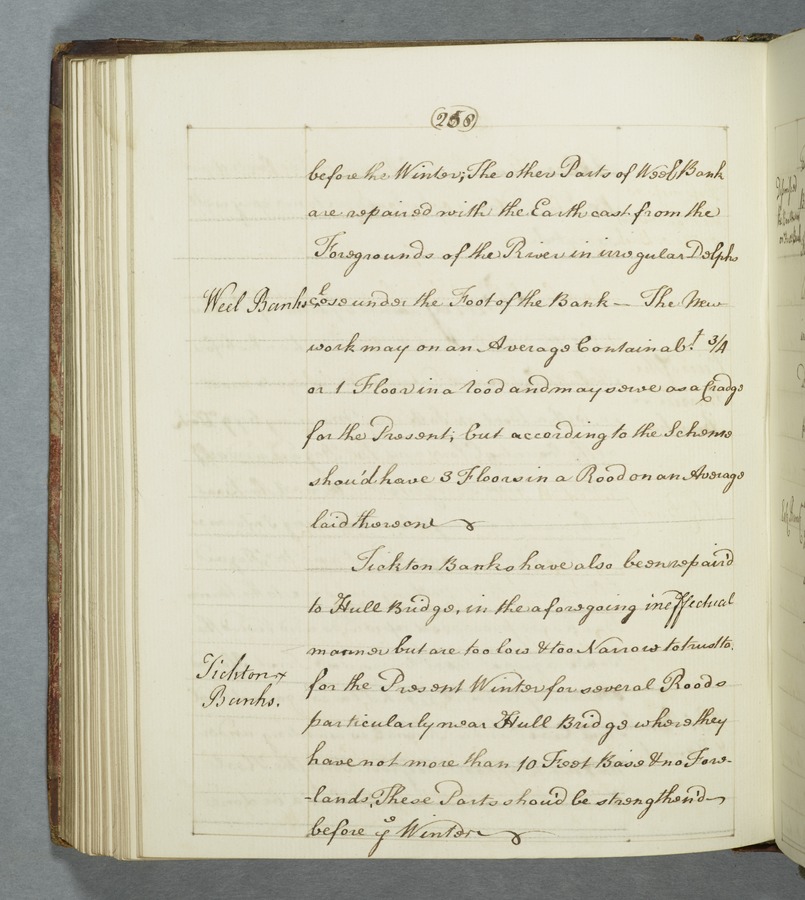 258
before the Winter; The other Parts of Weel Bank
are repaired with the Earth cast from the
Foregrounds of the River in irregular Delphs
Weel Banks
close under the Foot of the Bank — The New
work may on an Average Contain abt. 3/4
or 1 Floor in a rood and may serve as a Cradge
for the Present; but according to the Scheme
shou'd have 3 Floors in a Rood on an Average
laid thereon
Tickton Banks have also been repair'd
to Hull Bridge, in the aforegoing ineffectual
manner but are too low & too Narrow to trust to,
Tickton
Banks.
for the Present Winter for several Roods
particularly near Hull Bridge where they
have not more than 10 Feet Base & no Fore-
-lands, These Parts shou'd be strengthen'd
before ye Winter